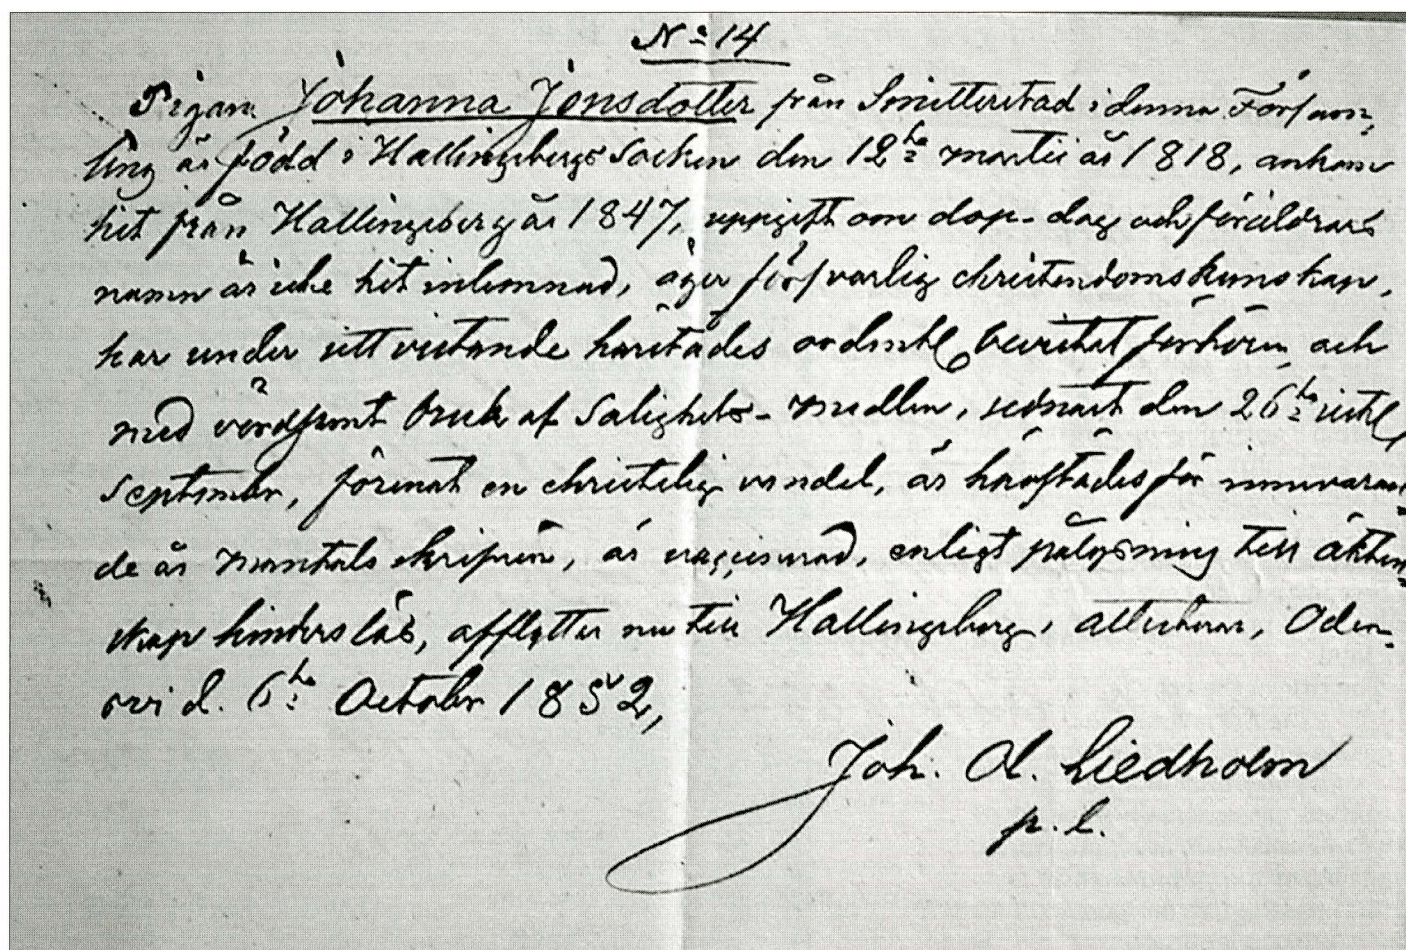 No 14
Pigan Johanna Jonsdotter från Smitterstad i denna Försam-
ling är född i Hallingebergs Socken den 12te martii år 1818, ankom
hit från Hallingeberg år 1847, uppgift om dop-dag och föräldrars
namn är icke hit inlemnad, äger förfvarlig christendomskunskap,
har under sitt vistande härstädes ordentl. bevistat förhören och
med vördsamt bruk af Salighets-medlen, sednast den 26te sistl.
September, förenat en christelig vandel, är härstädes för innevaran-
de år mantalsskrifven, är vaccinerad, enligt pålysning till äkten-
skap hinderslös, afflyttar nu till Hallingeberg, attesterar, Oden-
svi d. 6te October 1852,
Joh. Ol. Liedholm
p. l.